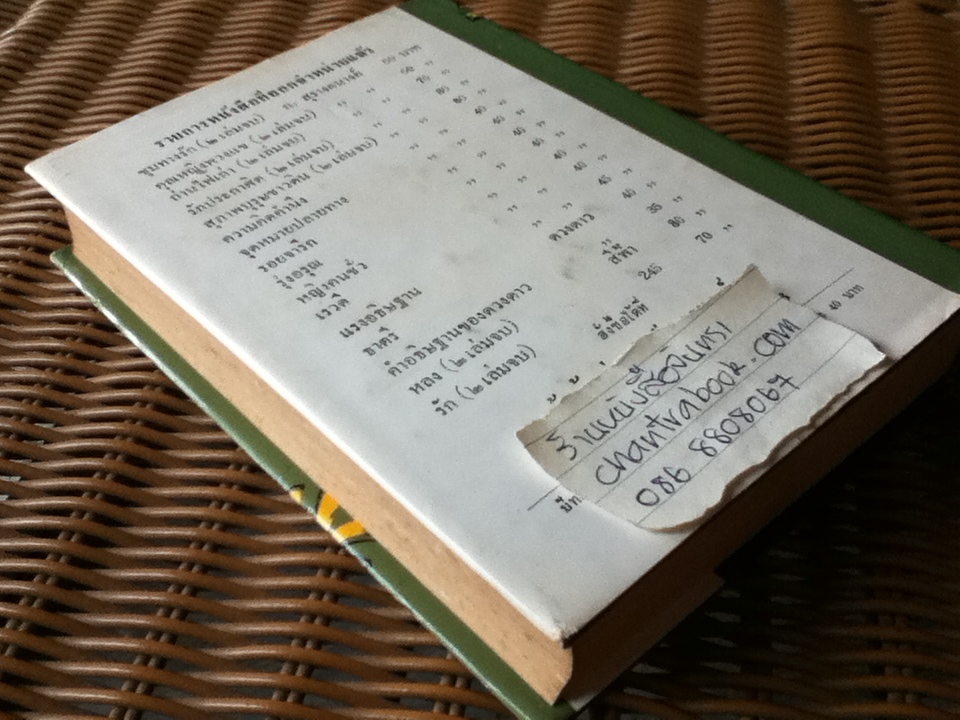 รายการหนังสือที่ออกจำหน่ายแล้ว
ขุมทางรัก (๒ เล่มจบ) ก. สุรางคนางค์ 60 บาท
คุณหญิงพวงแข (๒ เล่มจบ) " " 60 "
ถ่านไฟเก่า (๒ เล่มจบ) " " 70 "
รักประกาศิต (๒ เล่มจบ) " " 80 "
สุภาพบุรุษชาวดิน (๒ เล่มจบ) " " 80 "
ความคิดคำนึง " " 40 "
จุดหมายปลายทาง " " 40 "
รอยจารึก " " 40 "
รุ่งอรุณ " " 40 "
หญิงคนชั่ว " " 40 "
เรวดี " " 45 "
แรงอธิษฐาน ดวงดาว 40 "
ธาตรี " 35 "
คำอธิษฐานของดวงดาว สีฟ้า 80 "
หลง (๒ เล่มจบ) 70 "
รัก (๒ เล่มจบ) 245
สั่งซื้อได้ที่
40 บาท
ร้านหนังสือจันทรา
chantrabook.com
086 8808067